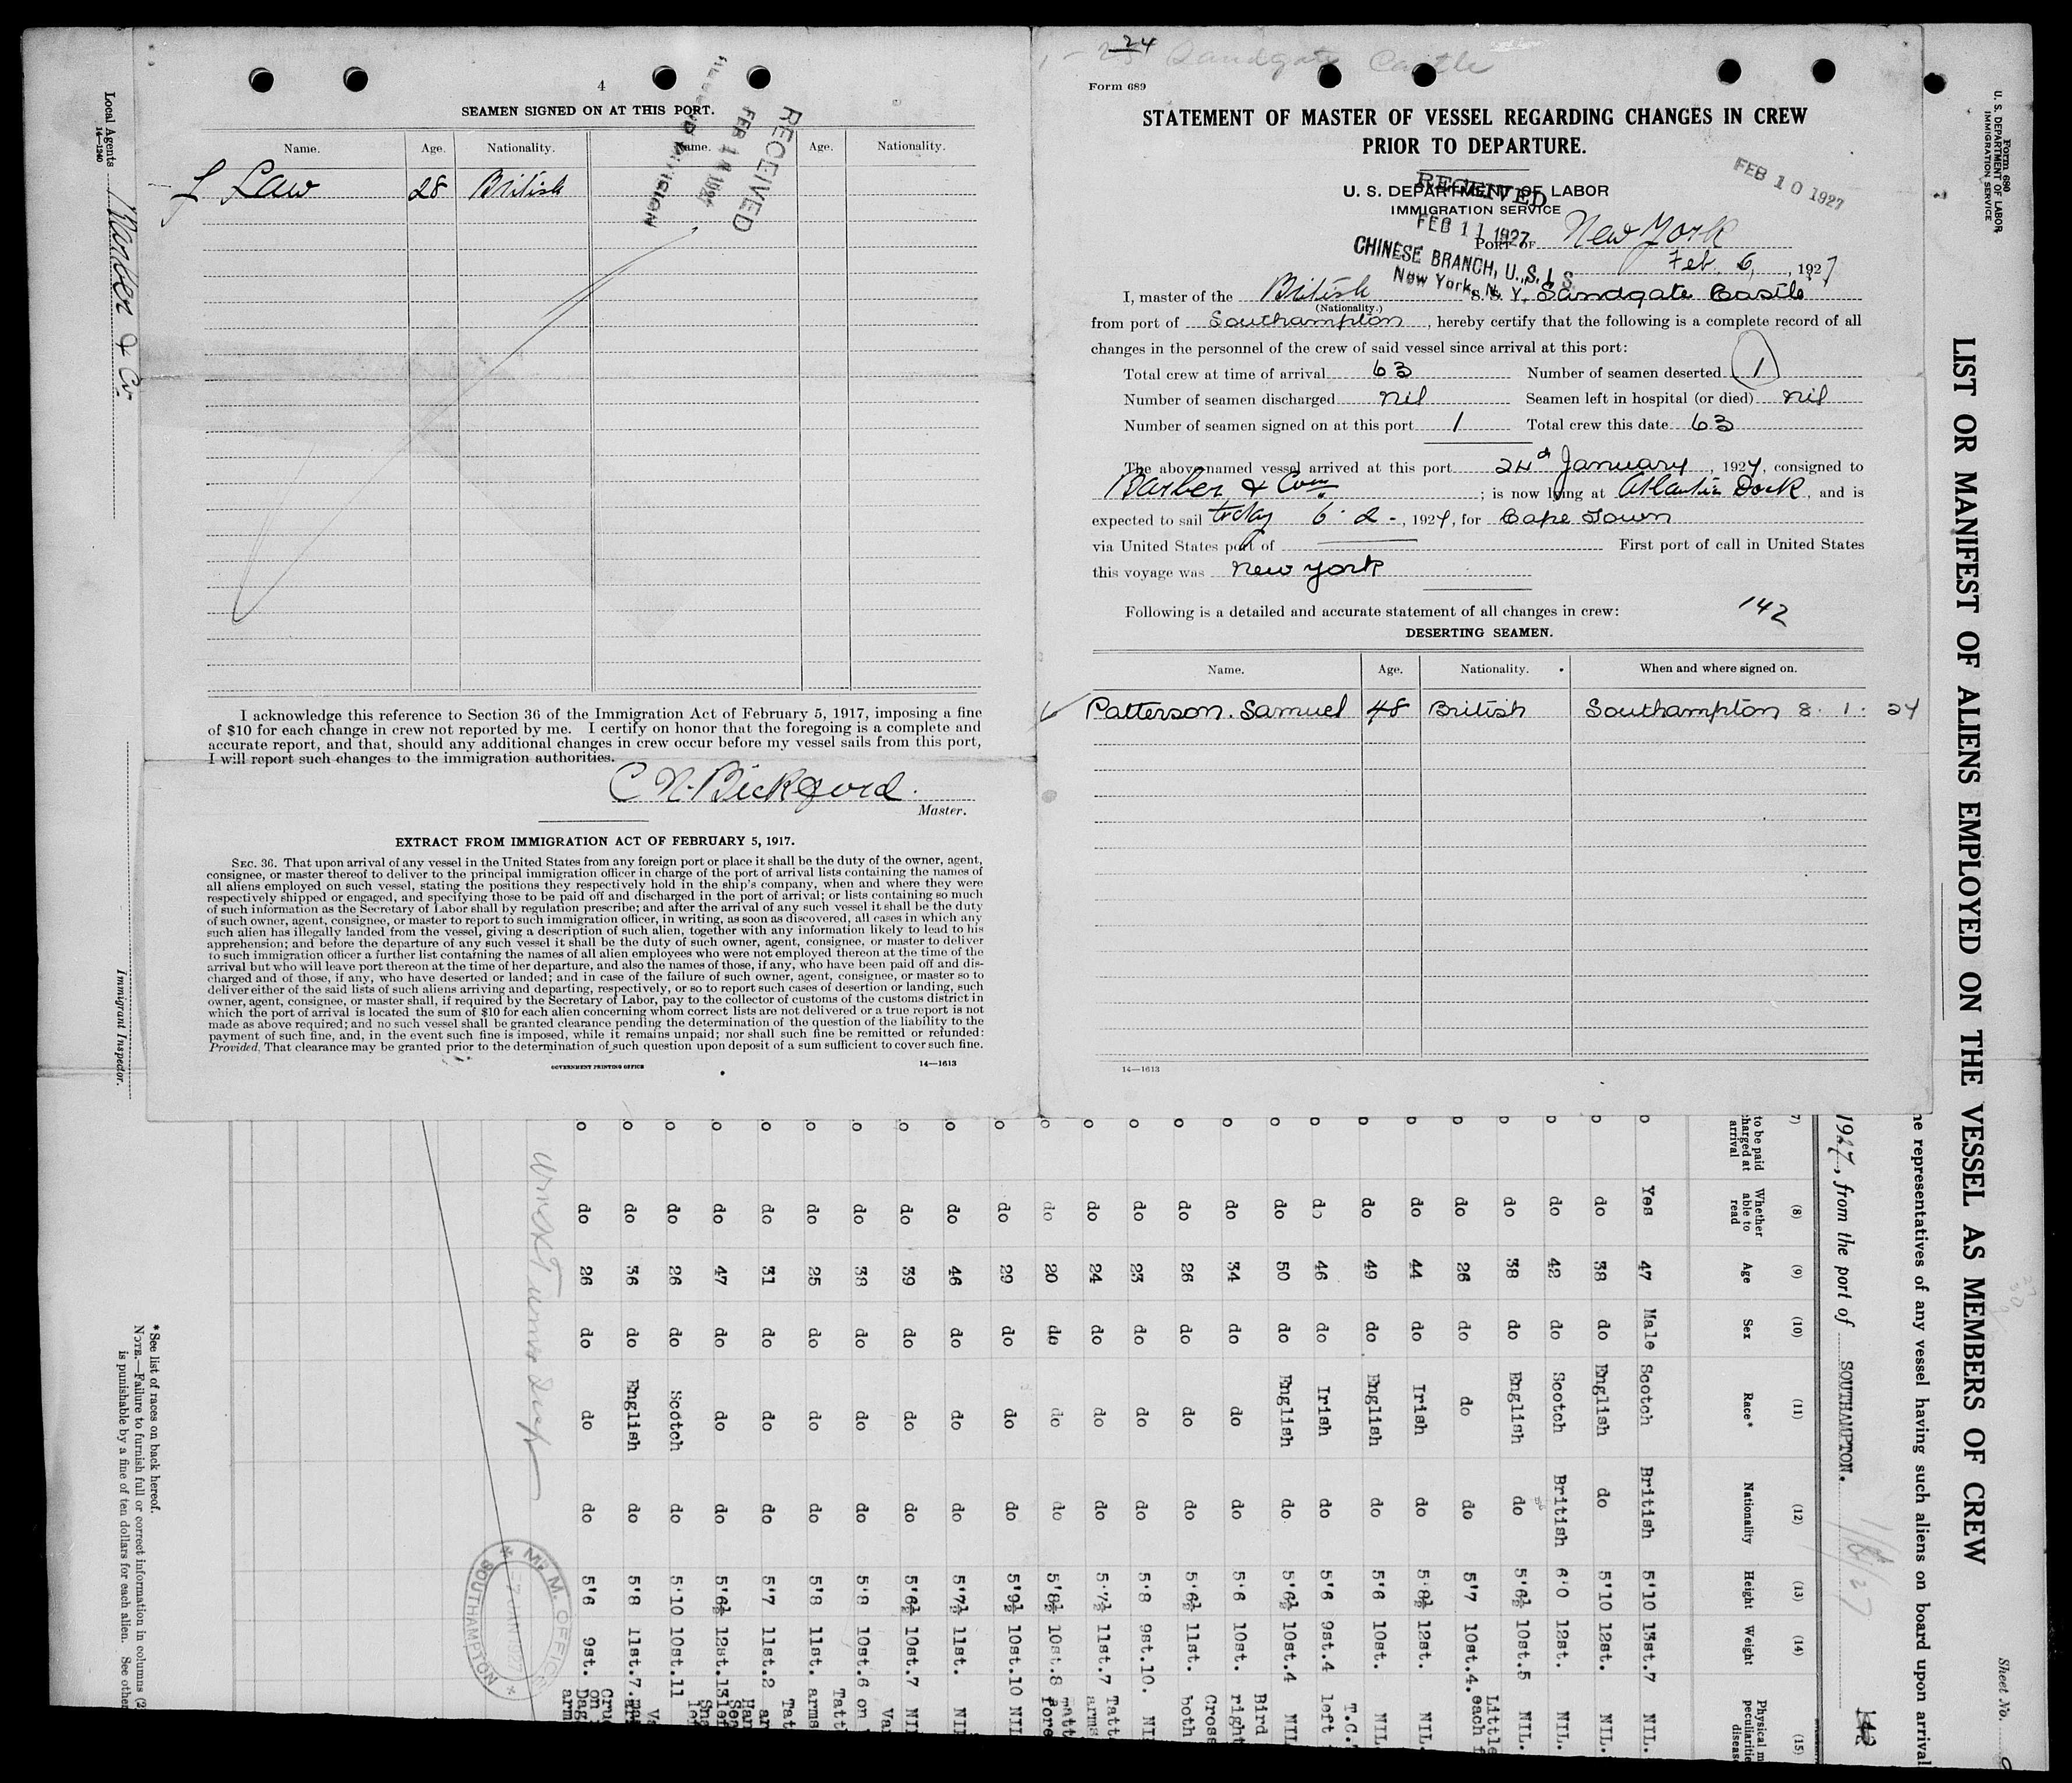 4
SEAMEN SIGNED ON AT THIS PORT.
Name. Age. Nationality. Name. Age. Nationality.
RECEIVED
Law 28 British
I acknowledge this reference to Section 36 of the Immigration Act of February 5, 1917, imposing a fine
of $10 for each change in crew not reported by me. I certify on honor that the foregoing is a complete and
accurate report, and that, should any additional changes in crew occur before my vessel sails from this port,
I will report such changes to the immigration authorities.
C N. Bickford.
Master.
EXTRACT FROM IMMIGRATION ACT OF FEBRUARY 5, 1917.
SEC. 36. That upon arrival of any vessel in the United States from any foreign port or place it shall be the duty of the owner, agent,
consignee, or master thereof to deliver to the principal immigration officer in charge of the port of arrival lists containing the names of
all aliens employed on such vessel, stating the positions they respectively hold in the ship's company, when and where they were
respectively shipped or engaged, and specifying those to be paid off and discharged in the port of arrival; or lists containing so much
of such information as the Secretary of Labor shall by regulation prescribe; and after the arrival of any such vessel it shall be the duty
of such owner, agent, consignee, or master to report to such immigration officer, in writing, as soon as discovered, all cases in which any
such alien has illegally landed from the vessel, giving a description of such alien, together with any information likely to lead to his
apprehension; and before the departure of any such vessel it shall be the duty of such owner, agent, consignee, or master to deliver
to such immigration officer a further list containing the names of all alien employees who were not employed thereon at the time of the
arrival but who will leave port thereon at the time of her departure, and also the names of those, if any, who have been paid off and dis-
charged and of those, if any, who have deserted or landed; and in case of the failure of such owner, agent, consignee, or master so to
deliver either of the said lists of such aliens arriving and departing, respectively, or so to report such cases of desertion or landing, such
owner, agent, consignee, or master shall, if required by the Secretary of Labor, pay to the collector of customs of the customs district in
which the port of arrival is located the sum of $10 for each alien concerning whom correct lists are not delivered or a true report is not
made as above required; and no such vessel shall be granted clearance pending the determination of the question of the liability to the
payment of such fine, and, in the event such fine is imposed, while it remains unpaid; nor shall such fine be remitted or refunded:
Provided, That clearance may be granted prior to the determination of such question upon deposit of a sum sufficient to cover such fine.
GOVERNMENT PRINTING OFFICE
14—1613
24 Sandgate Castle
Form 689
STATEMENT OF MASTER OF VESSEL REGARDING CHANGES IN CREW
PRIOR TO DEPARTURE.
FEB 10 1927
U. S. DEPARTMENT OF LABOR
IMMIGRATION SERVICE
RECEIVED
FEB 11 1927
CHINESE BRANCH, U. S. I. S.
New York, N. Y.
PORT OF New York
Feb. 6, 1927
I, master of the British S. S. Sandgate Castle
(Nationality.)
from port of Southampton, hereby certify that the following is a complete record of all
changes in the personnel of the crew of said vessel since arrival at this port:
Total crew at time of arrival 63 Number of seamen deserted 1
Number of seamen discharged nil Seamen left in hospital (or died) nil
Number of seamen signed on at this port 1 Total crew this date 63
The above-named vessel arrived at this port 24th January, 1927, consigned to
Barber & Com; is now lying at Atlantic Dock, and is
expected to sail today 6 - 2 -, 1927, for Cape Town
via United States port of First port of call in United States
this voyage was New York
Following is a detailed and accurate statement of all changes in crew: 142
DESERTING SEAMEN.
Name. Age. Nationality. When and where signed on.
Patterson. Samuel 48 British Southampton 8. 1. 27
14—1613
Local Agents Barber & Co.
14—1240
Immigrant Inspector.
Form 680
U. S. DEPARTMENT OF LABOR
IMMIGRATION SERVICE
LIST OR MANIFEST OF ALIENS EMPLOYED ON THE VESSEL AS MEMBERS OF CREW
Sheet No.
he representatives of any vessel having such aliens on board upon arrival
1927, from the port of SOUTHAMPTON.
(8) (9) (10) (11) (12) (13) (14) (15)
to be paid Whether able to read Age Sex Race* Nationality Height Weight
Yes 47 Male Scotch British 5'10 13st.7 NIL.
do 38 do English do 5'10 12st. NIL.
do 42 do Scotch British 6'0 12st. NIL.
do 38 do English do 5'6½ 10st.5 NIL.
do 26 do do do 5'7 10st.4. Little each
do 44 do Irish do 5'8½ 12st. NIL.
do 49 do English do 5'6 10st. NIL.
do 46 do Irish do 5'6 9st.4 left
do 50 do English do 5'6½ 10st.4 NIL
do 34 do do do 5'6 10st. Bird right
do 26 do do do 5'6½ 11st. Cross both
do 23 do do do 5'8 9st.10.
do 24 do do do 5'7½ 11st.7 Tatt arms
do 20 do do do 5'8½ 10st.8
do 29 do do do 5'9½ 10st.10 NIL
do 46 do do do 5'7½ 11st. NIL
do 39 do do do 5'6½ 10st.7 NIL
do 38 do do do 5'8 10st.6 on
do 25 do do do 5'8 11st. arms
do 31 do do do 5'7 11st.2
do 47 do do do 5'6½ 12st.13
do 26 do Scotch do 5'10 10st.11
do 36 do English do 5'8 11st.7.
do 26 do do do 5'6 9st.
M. M. OFFICE
7 JAN 1927
SOUTHAMPTON
*See list of races on back hereof.
NOTE.—Failure to furnish full or correct information in columns (2
is punishable by a fine of ten dollars for each alien. See other